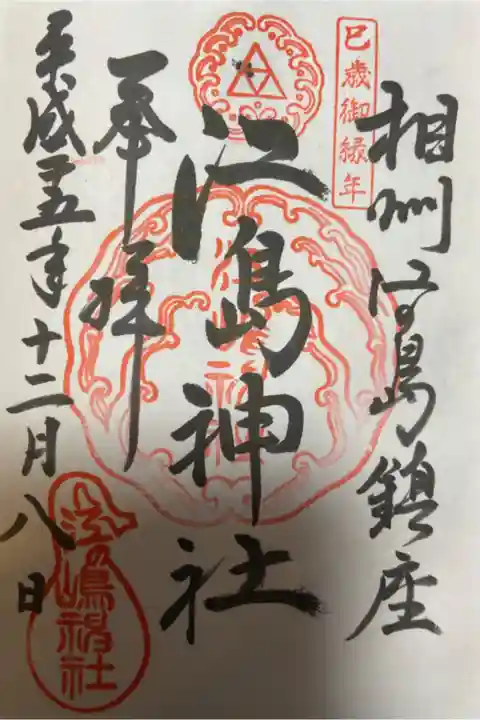 巳歳御縁年
相州江の島鎮座
江島神社
奉拝
平成二十五年十二月八日
江の嶋神社